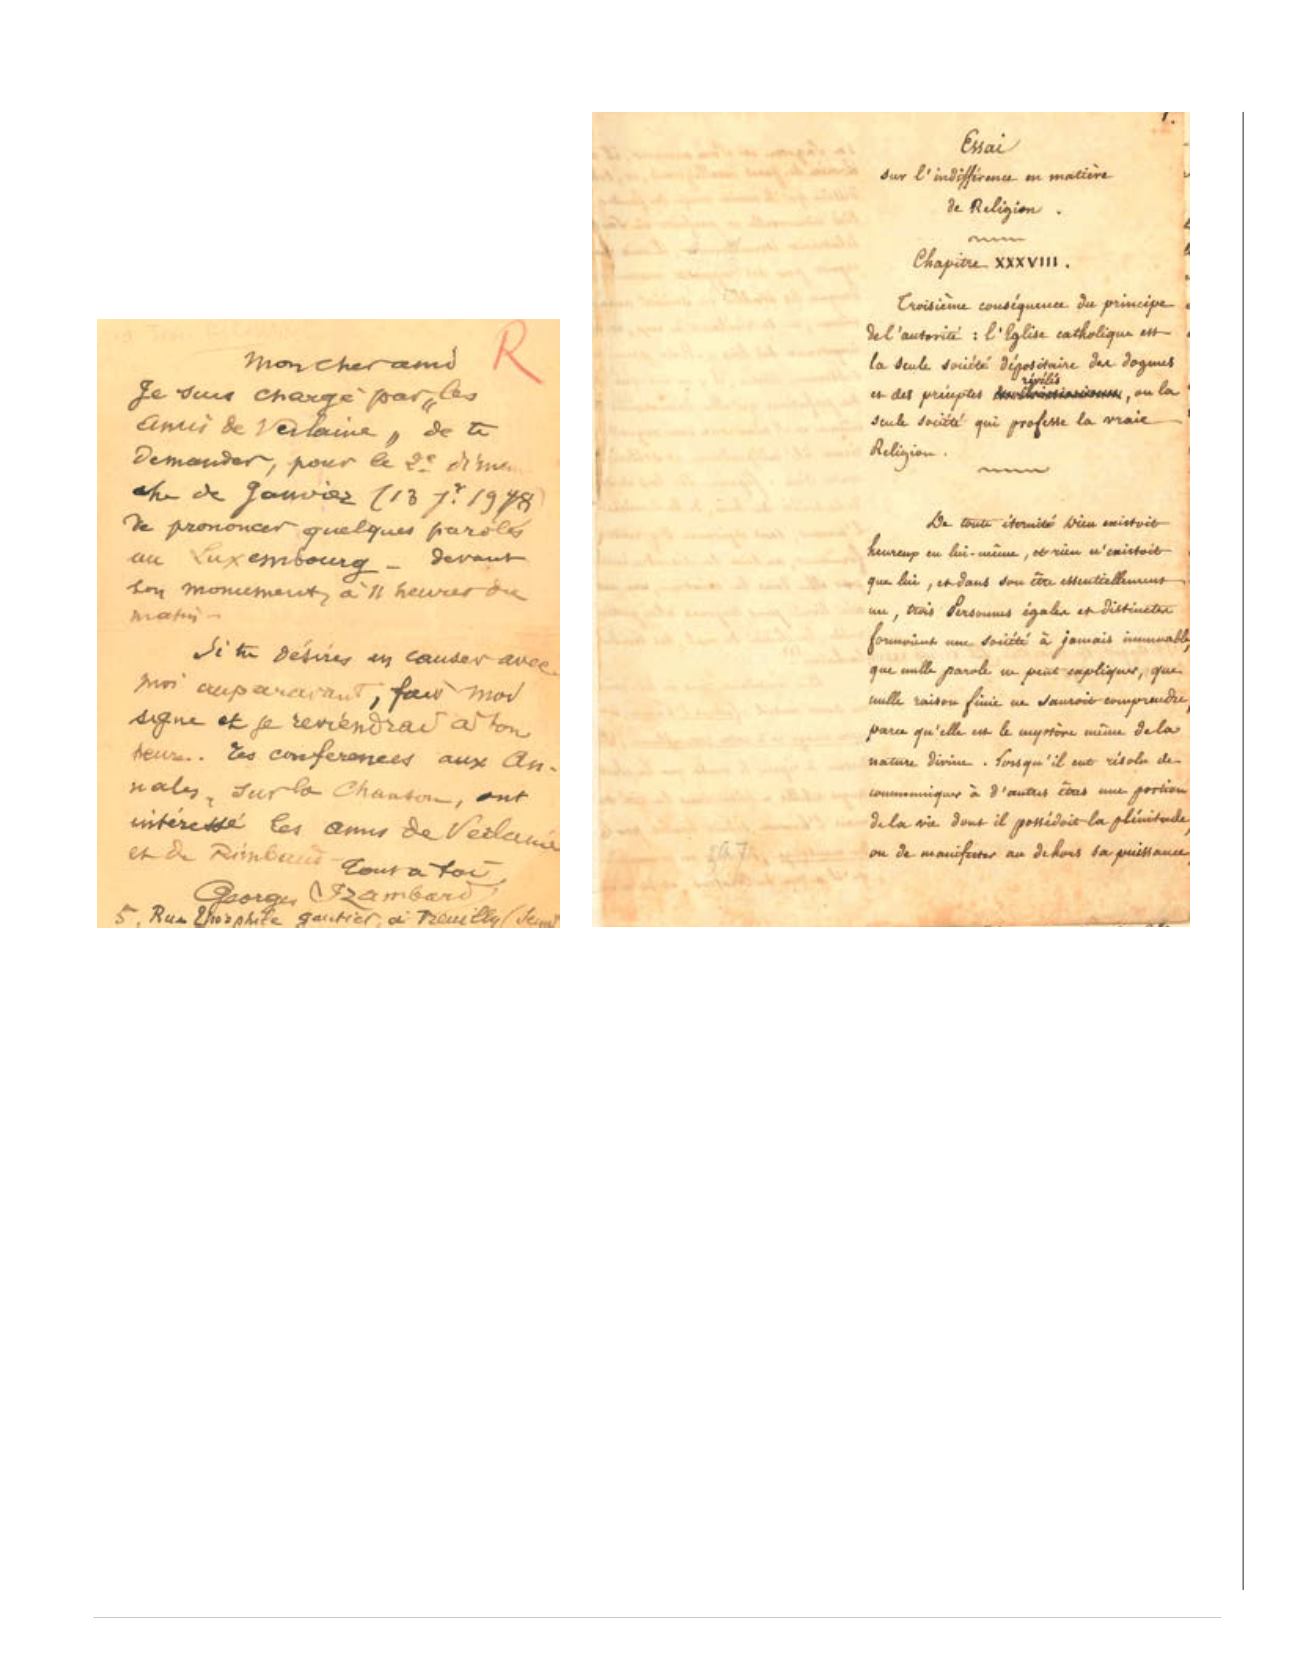 Mon cher ami R
Je suis chargé par „les
Amis de Verlaine„ de te
demander, pour le 2e diman
che de Janvier (13 Jr. 19
de prononcer quelques paroles
au Luxembourg - devant
son monument, à 11 heures du
matin -
Si tu désires en causer avec
moi auparavant, fais moi
signe et je reviendrai à ton
heure.. Tes conferences aux An-
nales, sur la Chanson, ont
intéressé les amis de Verlaine
et de Rimbaud
tout à toi,
Georges Izambard
5, Rue Théophile Gautier, à Neuilly (Seine
1.
Essai
sur l'indifférence en matière
de Religion .
Chapitre XXXVIII .
Troisième conséquence du principe
de l'autorité : l'Eglise catholique est
la seule société dépositaire des dogmes
révélés
et des préceptes , ou la
seule société qui professe la vraie
Religion .
De toute éternité Dieu existoit
heureux en lui-même, et rien n'existoit
que lui, et dans son être essentiellement
un, trois Personnes égales et distinctes
formoient une société à jamais immuable,
que nulle parole ne peut expliquer, que
nulle raison finie ne sauroit comprendre,
parce qu'elle est le mystère même de la
nature divine . Lorsqu'il eut résolu de
communiquer à d'autres êtres une portion
de la vie dont il possédoit la plénitude,
ou de manifester au dehors sa puissance